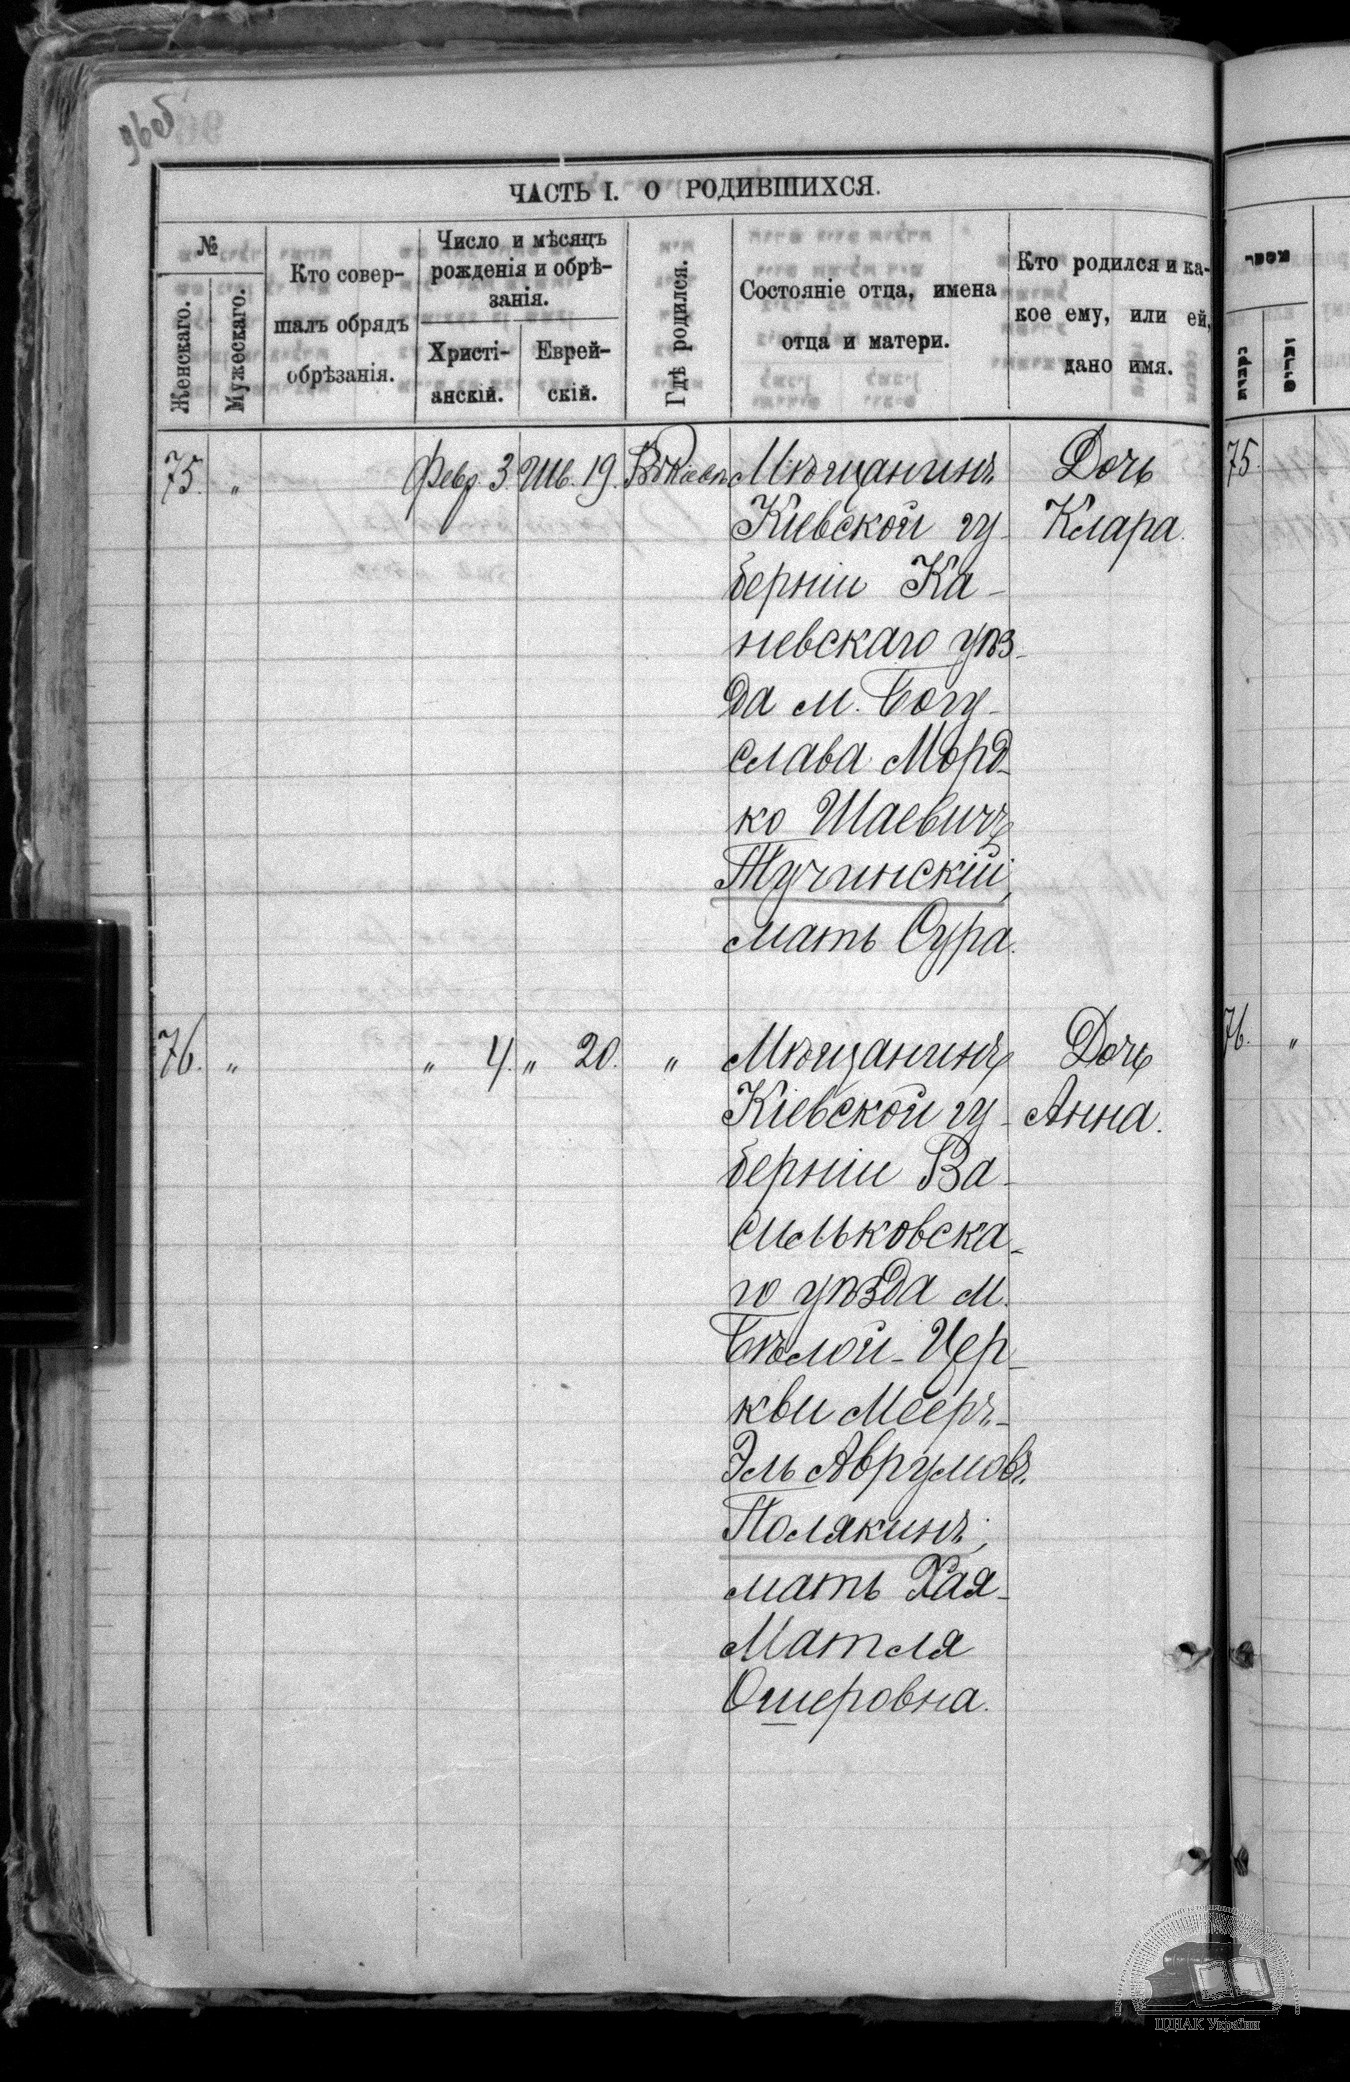 96об
ЧАСТЬ I. О РОДИВШИХСЯ.
№
Женскаго.
Мужескаго.
Кто совер-
шалъ обрядъ
обрѣзанія.
Число и мѣсяцъ
рожденія и обрѣ-
занія.
Христі-
анскій.
Еврей-
скій.
Гдѣ родился.
Состояніе отца, имена
отца и матери.
Кто родился и ка-
кое ему, или ей,
дано имя.
75. „ Февр. 3. Шв. 19. Въ Кіевѣ
Мѣщанинъ
Кіевской гу-
берніи Ка-
невскаго уѣз-
да м. Богу-
слава Морд-
ко Шаевичъ
Тучинскій,
мать Сура.
Дочь
Клара.
76. „ „ 4. „ 20. „
Мѣщанинъ
Кіевской гу-
берніи Ва-
сильковска-
го уѣзда м.
Бѣлой-Цер-
кви Мееръ-
Эль Аврумовъ
Полякинъ,
мать Хая-
Матля
Ошеровна.
Дочь
Анна.
מספר
נקבות
זכרים
75.
76. „
ЦДІАК України